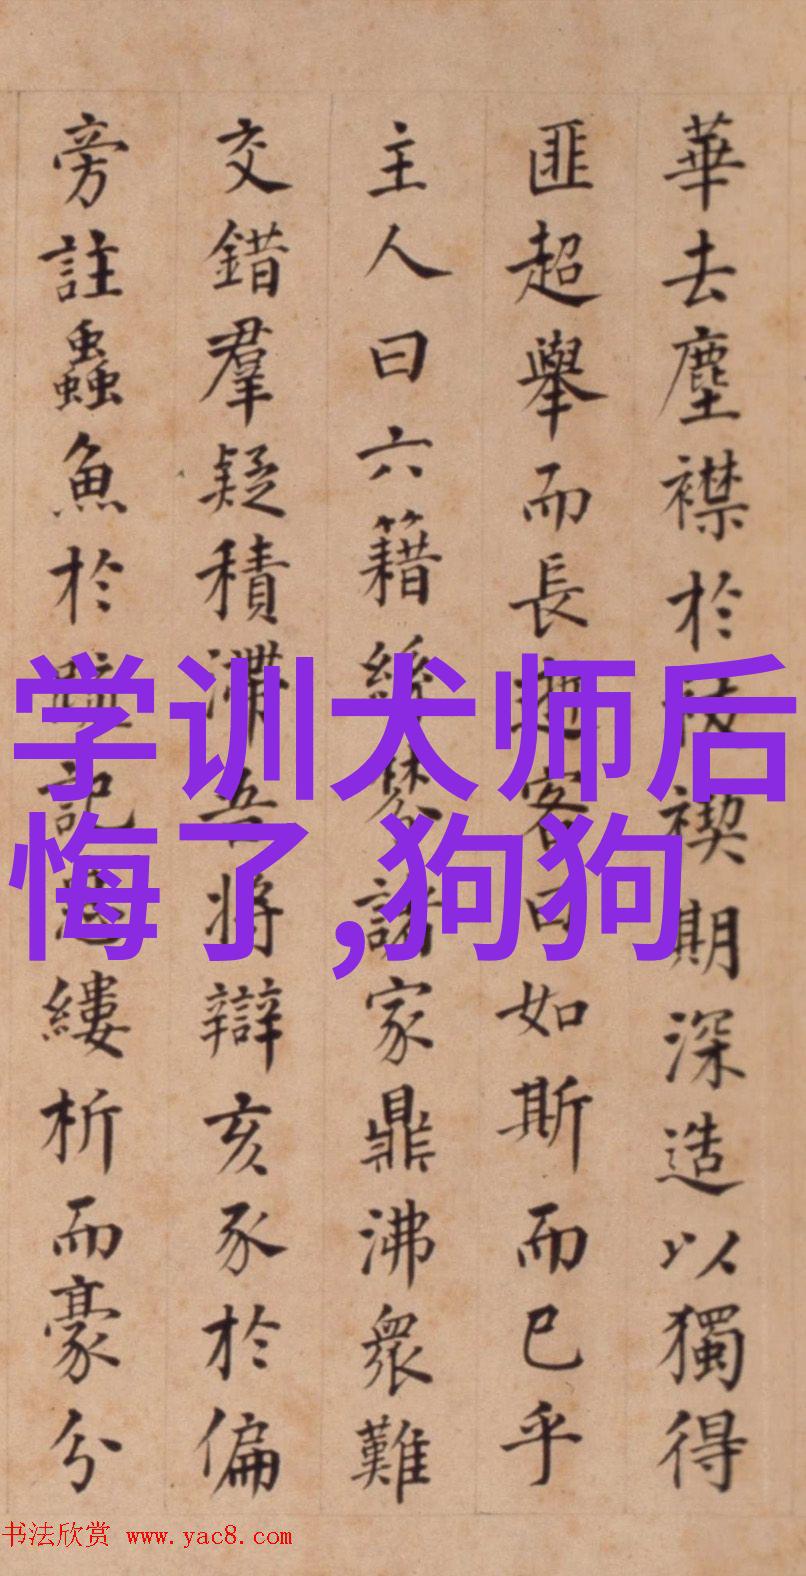 華去塵襟於祓禊期深造以獨得
匪超舉而長客曰如斯而已乎
主人曰六籍絲棼諸家鼎沸衆難
交錯羣疑積滯吾將辯亥豕於偏
旁註蟲魚於記縷析而豪分
学训犬师后
悔了,狗狗
书法欣赏 www.yac8.com